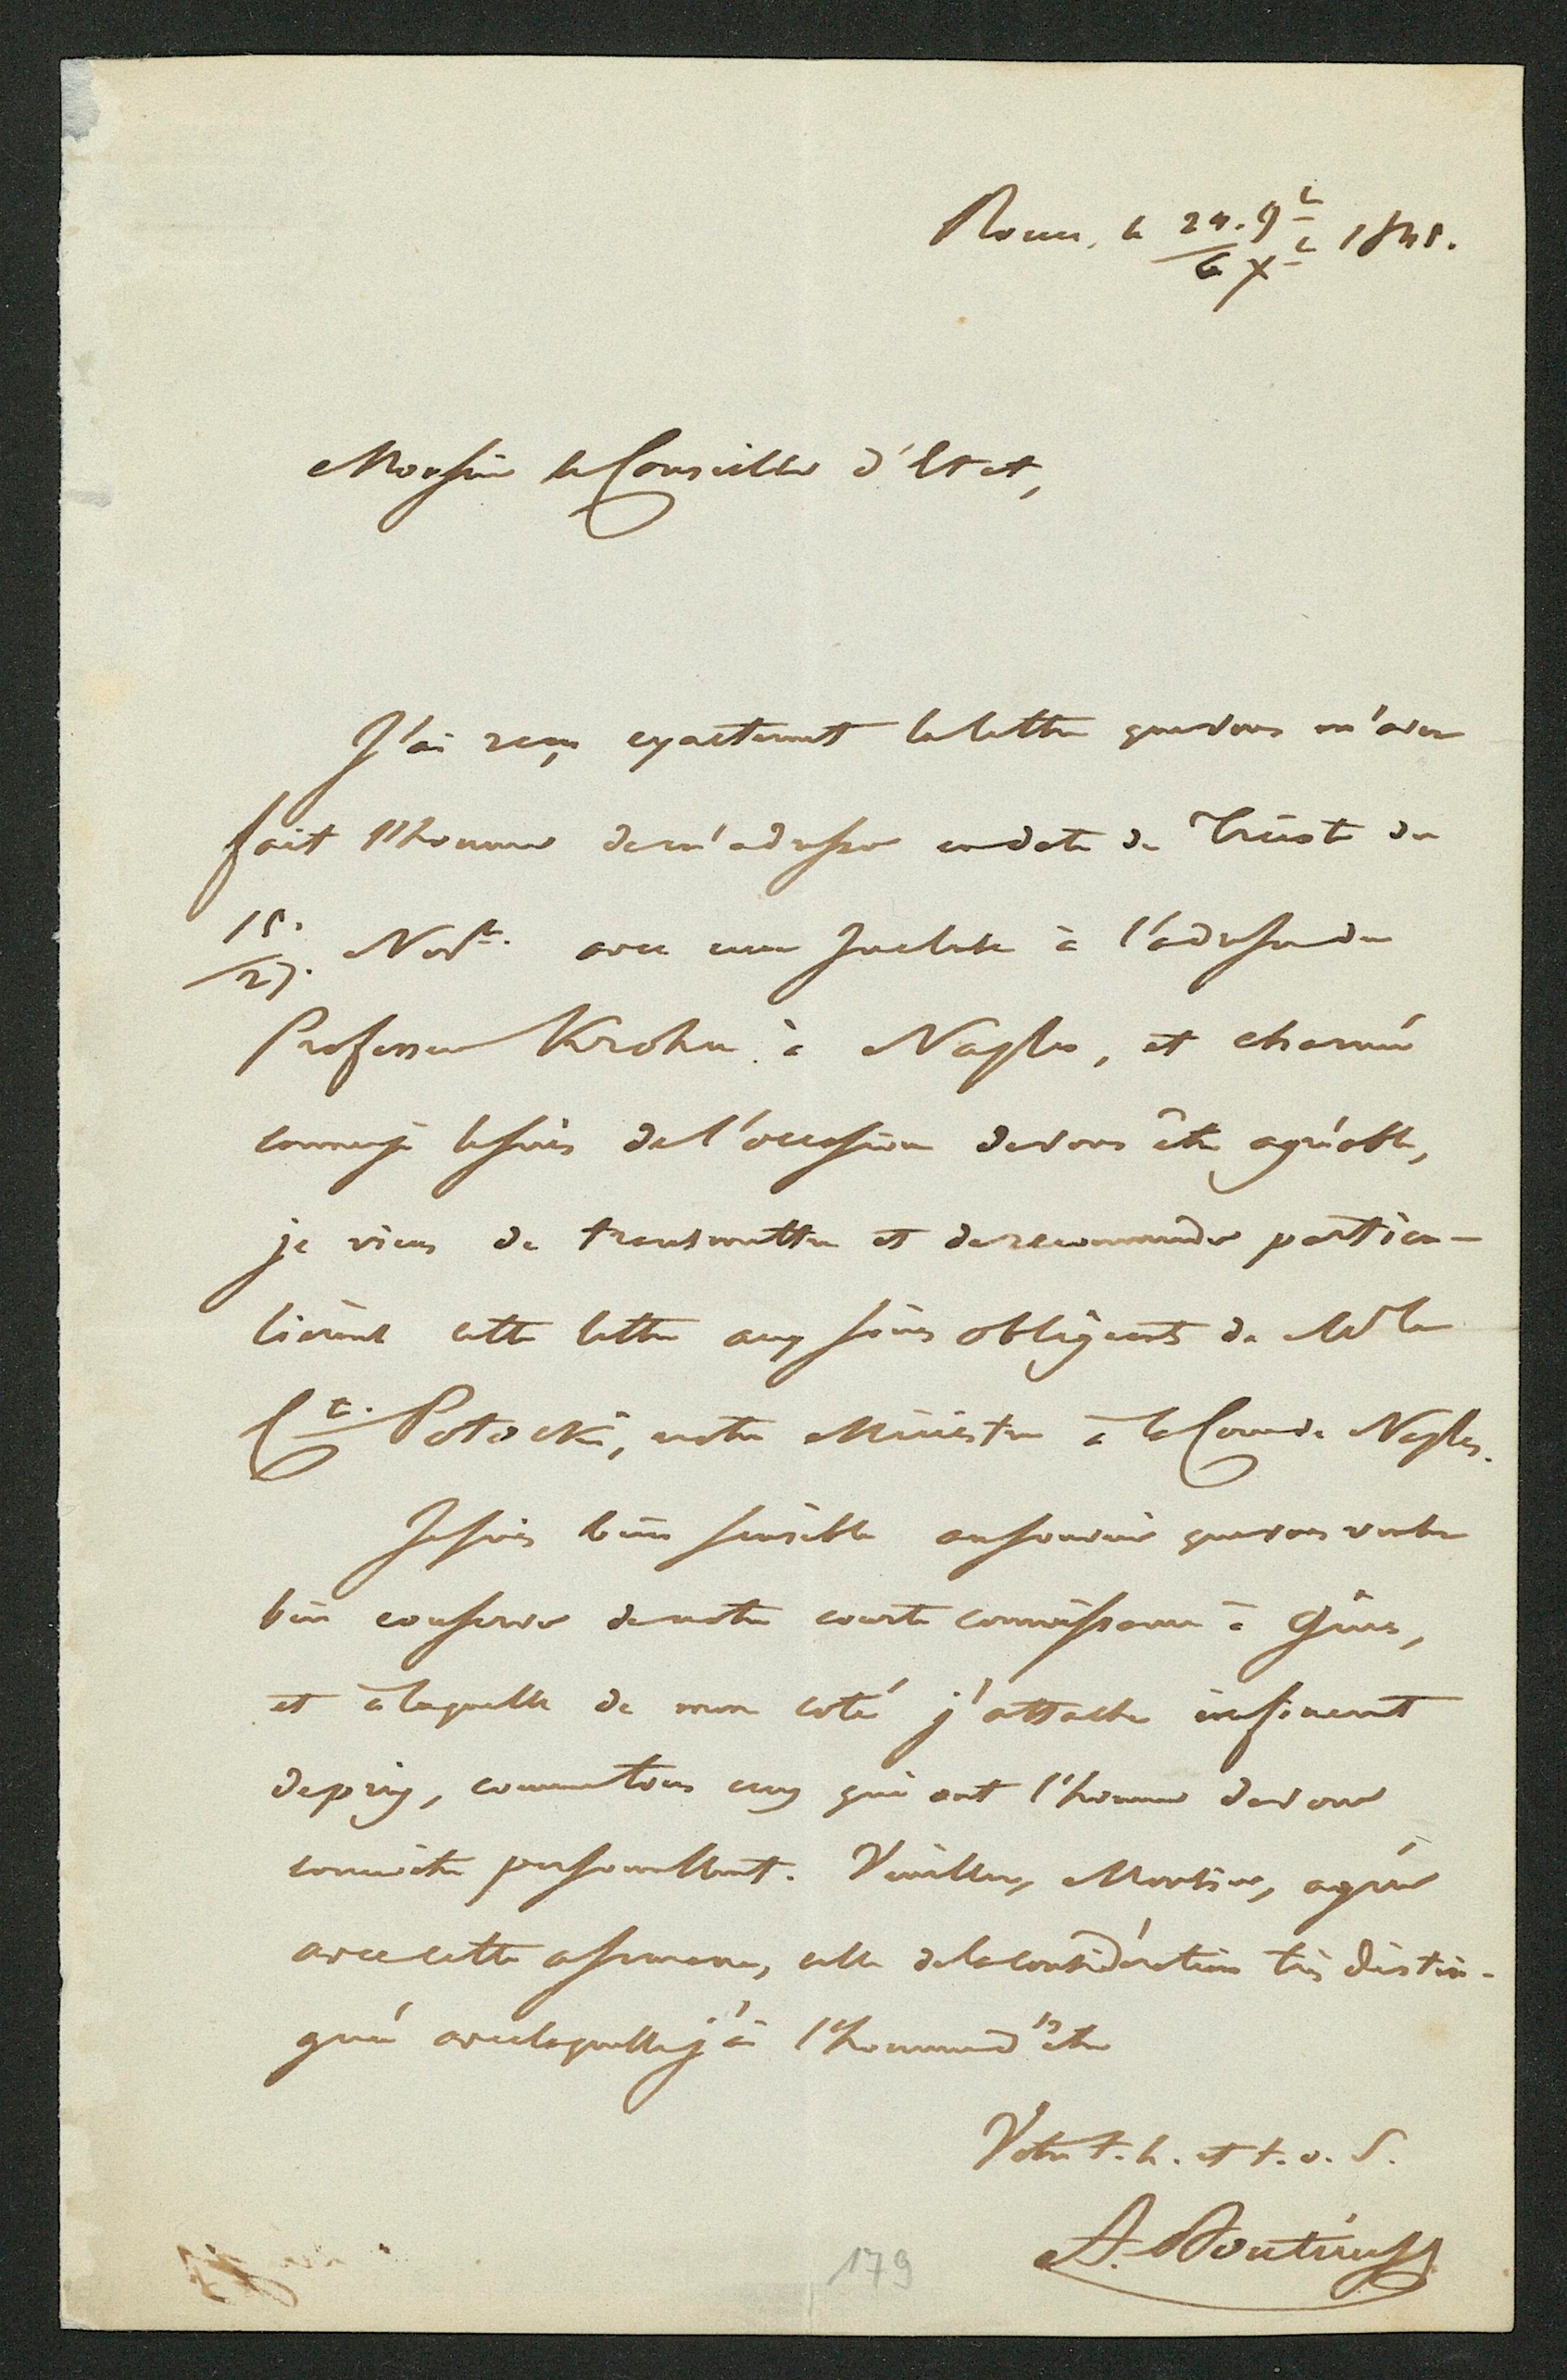 Rome, le 24. 9bre 1845.
6 Xbre
Monsieur le Conseiller d'Etat,
J'ai reçu exactement la lettre que vous m'avez
fait l'honneur de m'adresser en date de Trieste du
15.
27. Novbre. avec une Incluse à l'adresse du
Professeur Krohn à Naples, et charmé
comme je le suis de l'occasion de vous être agréable,
je viens de transmettre et de recommander particu-
lièremt cette lettre aux soins obligeants de Mr le
Cte. Potocki, notre Ministre à la Cour de Naples.
Je suis bien sensible au souvenir que vous voulez
bien conserver de notre courte connaissance à Gênes,
et à laquelle de mon coté j'attache infiniment
de prix, comme tous ceux qui ont l'honneur de vous
connaître personnellement. Veuillez, Monsieur, agréer
avec cette assurance, celle de la considération très distin-
guée avec laquelle j'ai l'honneur d'être
Votre t. h. et t. o. S.
A. Boutenieff
179